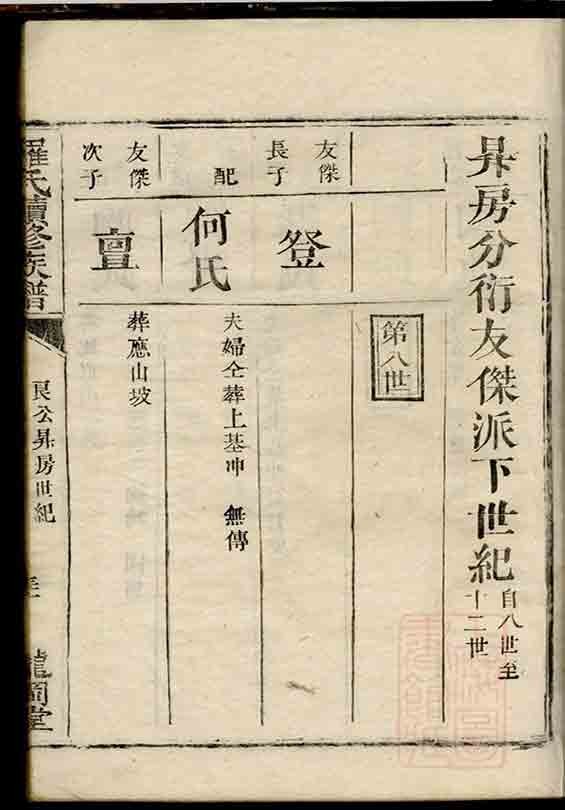 昇房分衍友傑派下世紀
自八世至
十二世
第八世
友傑
長子
登
配
何氏
夫婦仝葬上基冲　無傳
友傑
次子
亶
葬應山坡
羅氏續修族譜
良公昇房世紀